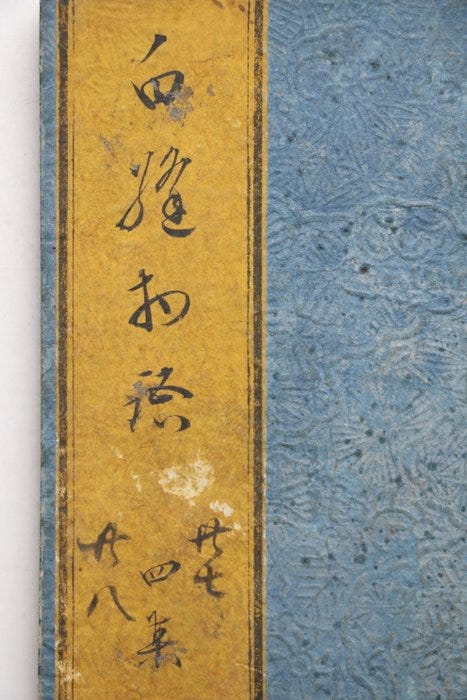 白縫物語
廿七
四集
廿八